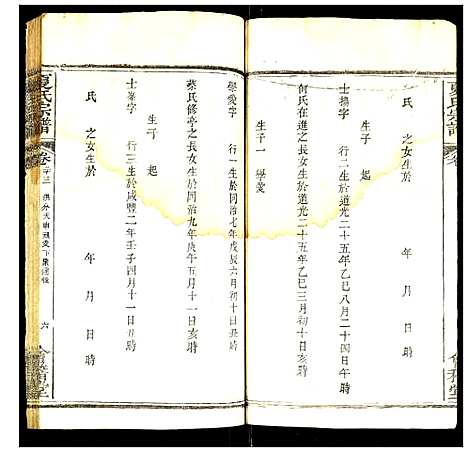 夏氏宗譜
卷
氏 之女生於 年 月 日 時
生子 起
士 行二生於道光二十五年乙巳八月二十四日午時
何氏在進之長女生於道光二十五年乙巳三月初十日亥時
生子一 學愛
學愛字 行一生於同治七年戊辰六月初十日丑時
蔡氏修亭之長女生於同治九年庚午五月十一日亥時
生子 起
士 行三生於咸豐二年壬子四月十一日 時
氏 之女生於 年 月 日 時
夏氏宗譜
卷
六